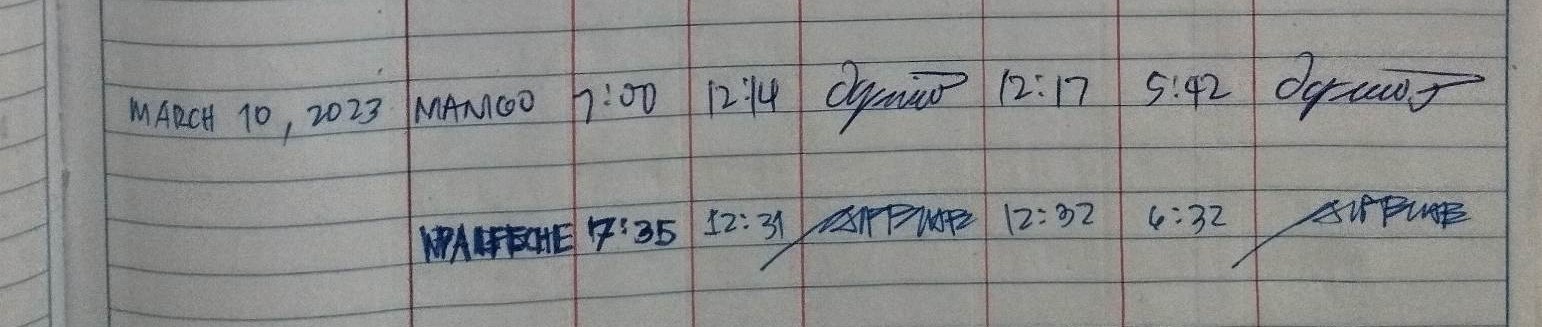 MARCH 10, 2023 MANIGO 7:00 12:14 12:17 5:42
7:35 12:31 12:32 6:32